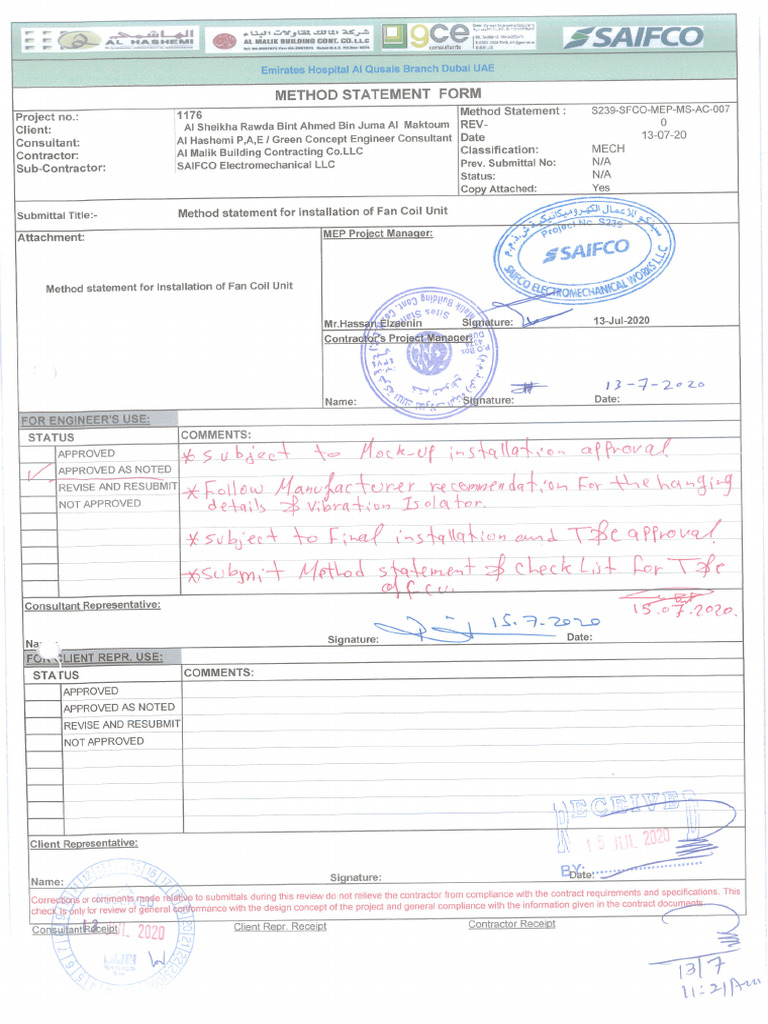 الهاشمي
AL HASHEMI
شركة المالك لمقاولات البناء
AL MALIK BUILDING CONT. CO.LLC
gce
consultants
SAIFCO
Emirates Hospital Al Qusais Branch Dubai UAE
METHOD STATEMENT FORM
Project no.: 1176
Client: Al Sheikha Rawda Bint Ahmed Bin Juma Al Maktoum
Consultant: Al Hashemi P,A,E / Green Concept Engineer Consultant
Contractor: Al Malik Building Contracting Co.LLC
Sub-Contractor: SAIFCO Electromechanical LLC
Method Statement : S239-SFCO-MEP-MS-AC-007
REV- 0
Date 13-07-20
Classification: MECH
Prev. Submittal No: N/A
Status: N/A
Copy Attached: Yes
Submittal Title:- Method statement for Installation of Fan Coil Unit
Attachment:
Method statement for Installation of Fan Coil Unit
MEP Project Manager:
Project No. S239
SAIFCO
SAIFCO ELECTROMECHANICAL WORKS L.L.C
Mr.Hassan Elzaenin Signature: 13-Jul-2020
Contractor's Project Manager:
13-7-2020
Name: Signature: Date:
FOR ENGINEER'S USE:
STATUS COMMENTS:
APPROVED
APPROVED AS NOTED
REVISE AND RESUBMIT
NOT APPROVED
* Subject to Mock-up installation approval.
* Follow Manufacturer recommendation For the hanging
details & vibration Isolator.
* subject to Final installation and T&c approval.
* submit Method statement & check List for T&c
of F.C.U.
15.07.2020.
Consultant Representative:
15.7.2020
Signature: Date:
FOR CLIENT REPR. USE:
STATUS COMMENTS:
APPROVED
APPROVED AS NOTED
REVISE AND RESUBMIT
NOT APPROVED
RECEIVED
15 JUL 2020
BY:
Client Representative:
Name: Signature: Date:
Corrections or comments made relative to submittals during this review do not relieve the contractor from compliance with the contract requirements and specifications. This
check is only for review of general conformance with the design concept of the project and general compliance with the information given in the contract documents
Consultant Receipt Client Repr. Receipt Contractor Receipt
JUL 2020
13/7
11:21/Am